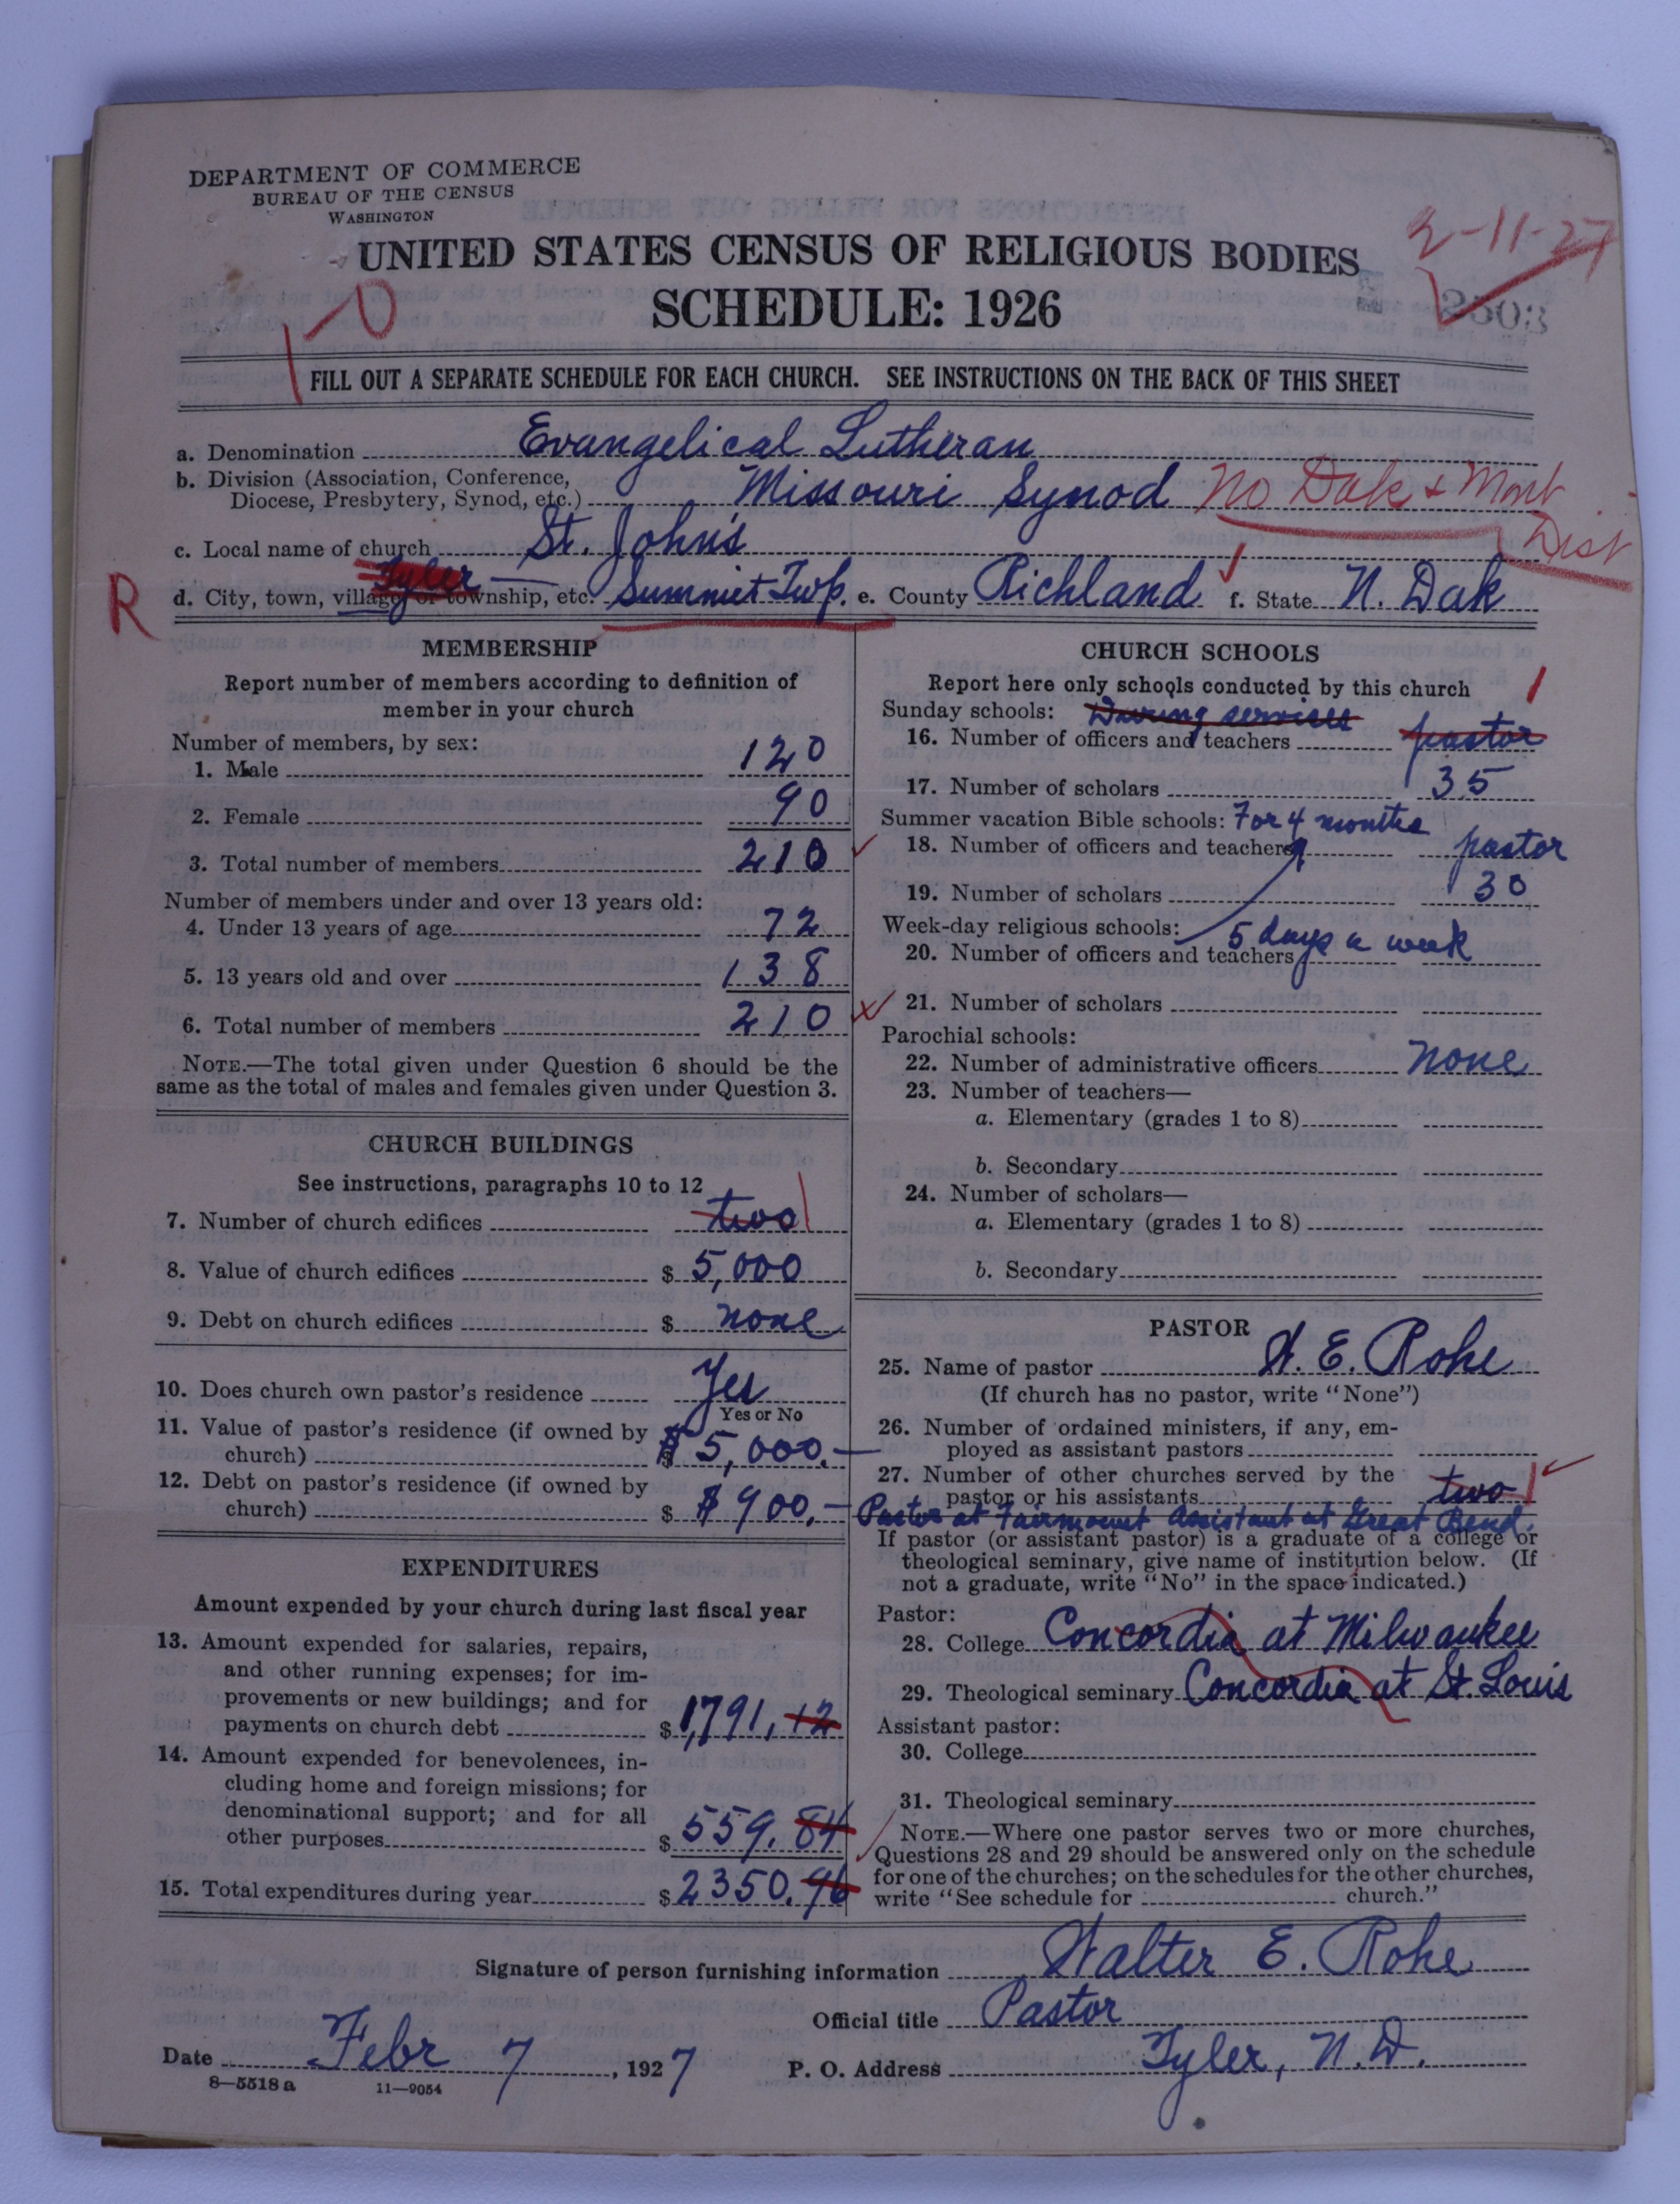 DEPARTMENT OF COMMERCE
BUREAU OF THE CENSUS
WASHINGTON
UNITED STATES CENSUS OF RELIGIOUS BODIES
SCHEDULE: 1926
2-11-27
2503
1-0
FILL OUT A SEPARATE SCHEDULE FOR EACH CHURCH. SEE INSTRUCTIONS ON THE BACK OF THIS SHEET
a. Denomination Evangelical Lutheran
b. Division (Association, Conference,
Diocese, Presbytery, Synod, etc.) Missouri Synod No Dak & Mont
Dist
c. Local name of church St. John's
R
Tyler
d. City, town, village or township, etc. Summit Twp. e. County Richland f. State N. Dak
MEMBERSHIP
Report number of members according to definition of
member in your church
Number of members, by sex:
1. Male 120
2. Female 90
3. Total number of members 210
Number of members under and over 13 years old:
4. Under 13 years of age 72
5. 13 years old and over 138
6. Total number of members 210
NOTE.—The total given under Question 6 should be the
same as the total of males and females given under Question 3.
CHURCH BUILDINGS
See instructions, paragraphs 10 to 12
7. Number of church edifices two 1
8. Value of church edifices $ 5,000
9. Debt on church edifices $ none
10. Does church own pastor's residence Yes
Yes or No
11. Value of pastor's residence (if owned by
church) $ $5,000.—
12. Debt on pastor's residence (if owned by
church) $ $900.—
EXPENDITURES
Amount expended by your church during last fiscal year
13. Amount expended for salaries, repairs,
and other running expenses; for im-
provements or new buildings; and for
payments on church debt $ 1,791.12
14. Amount expended for benevolences, in-
cluding home and foreign missions; for
denominational support; and for all
other purposes $ 559.84
15. Total expenditures during year $ 2350.96
CHURCH SCHOOLS
Report here only schools conducted by this church
Sunday schools: During services 1
16. Number of officers and teachers pastor
17. Number of scholars 35
Summer vacation Bible schools: For 4 months
18. Number of officers and teachers pastor
19. Number of scholars 30
Week-day religious schools: 5 days a week
20. Number of officers and teachers
21. Number of scholars
Parochial schools:
22. Number of administrative officers none
23. Number of teachers—
a. Elementary (grades 1 to 8)
b. Secondary
24. Number of scholars—
a. Elementary (grades 1 to 8)
b. Secondary
PASTOR
25. Name of pastor W. E. Rohe
(If church has no pastor, write "None")
26. Number of ordained ministers, if any, em-
ployed as assistant pastors
27. Number of other churches served by the
pastor or his assistants two 1
Pastor at Fairmount Assistant at Great Bend.
If pastor (or assistant pastor) is a graduate of a college or
theological seminary, give name of institution below. (If
not a graduate, write "No" in the space indicated.)
Pastor:
28. College Concordia at Milwaukee
29. Theological seminary Concordia at St. Louis
Assistant pastor:
30. College
31. Theological seminary
NOTE.—Where one pastor serves two or more churches,
Questions 28 and 29 should be answered only on the schedule
for one of the churches; on the schedules for the other churches,
write "See schedule for church."
Signature of person furnishing information Walter E. Rohe
Official title Pastor
Date Febr 7, 1927 P. O. Address Tyler, N.D.
8—5518 a 11—9054